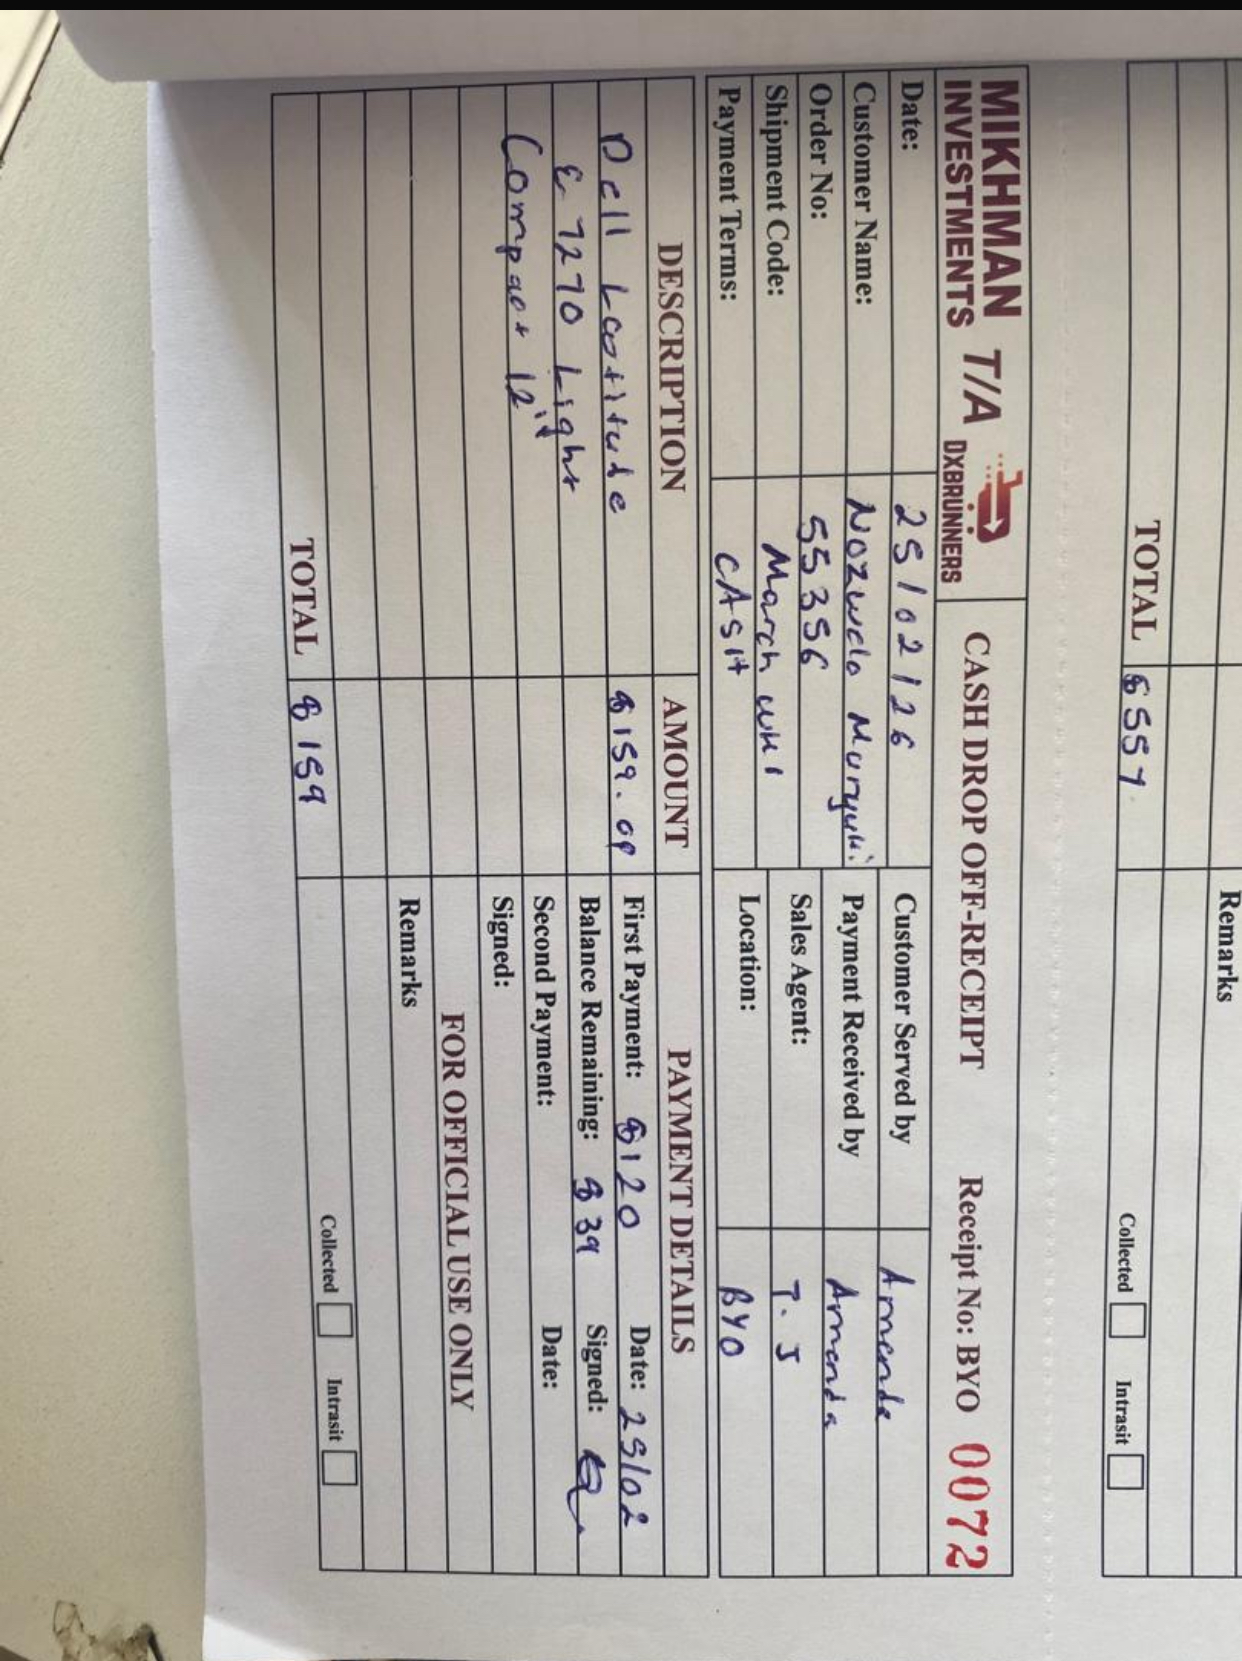 TOTAL $557
Remarks
Collected Intrasit
MIKHMAN INVESTMENTS T/A DXBRUNNERS
CASH DROP OFF-RECEIPT Receipt No: BYO 0072
Date: 25/02/26 Customer Served by Amanda
Customer Name: Payment Received by Amanda
Order No: 55356 Sales Agent: T.J
Shipment Code: March WK1 Location: BYO
Payment Terms: CASH
DESCRIPTION AMOUNT PAYMENT DETAILS
Dell Latitude $159.00 First Payment: $120 Date: 25/02
E7270 Light Balance Remaining: $39 Signed:
Compact 12" Second Payment: Date:
Signed:
FOR OFFICIAL USE ONLY
Remarks
TOTAL $159
Collected Intrasit